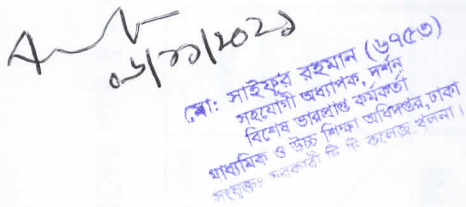 ০৬/১১/২০২১
মো: সাইফুর রহমান (৬৭৫৩)
সহযোগী অধ্যাপক, দর্শন
বিশেষ ভারপ্রাপ্ত কর্মকর্তা
মাধ্যমিক ও উচ্চ শিক্ষা অধিদপ্তর, ঢাকা
সংযুক্ত: সরকারী বি কলেজ, খুলনা।